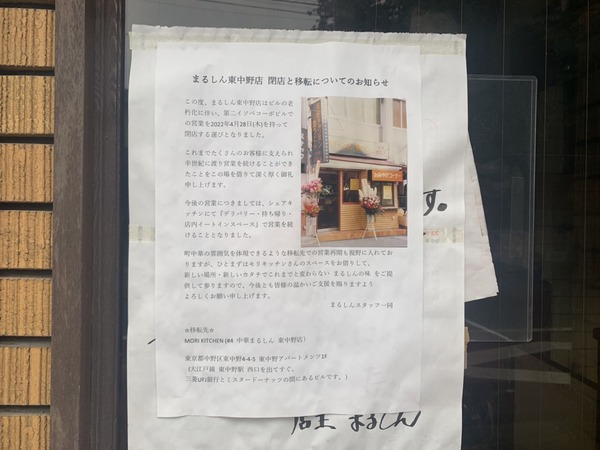 まるしん東中野店 閉店と移転についてのお知らせ
この度、まるしん東中野店はビルの老
朽化に伴い、第二イソベコーポビルで
の営業を2022年4月28日(木)を持って
閉店する運びとなりました。
これまでたくさんのお客様に支えられ
半世紀に渡り営業を続けることができ
たことをこの場を借りて深く厚く御礼
申し上げます。
今後の営業につきましては、シェアキ
ッチンにて『デリバリー・持ち帰り・
店内イートインスペース』で営業を続
けることとなりました。
町中華の雰囲気を体現できるような移転先での営業再開も視野に入れてお
りますが、ひとまずはモリキッチンさんのスペースをお借りして、
新しい場所・新しいカタチでこれまでと変わらない まるしんの味 をご提
供して参りますので、今後とも皆様の温かいご支援を賜りますよう
よろしくお願い申し上げます。
まるしんスタッフ一同
☆移転先☆
MORI KITCHEN (#4 中華まるしん 東中野店)
東京都中野区東中野4-4-5 東中野アパートメンツ1F
(大江戸線 東中野駅 西口を出てすぐ。
三菱UFJ銀行とミスタードーナッツの間にあるビルです。)
す。
店主 まるしん